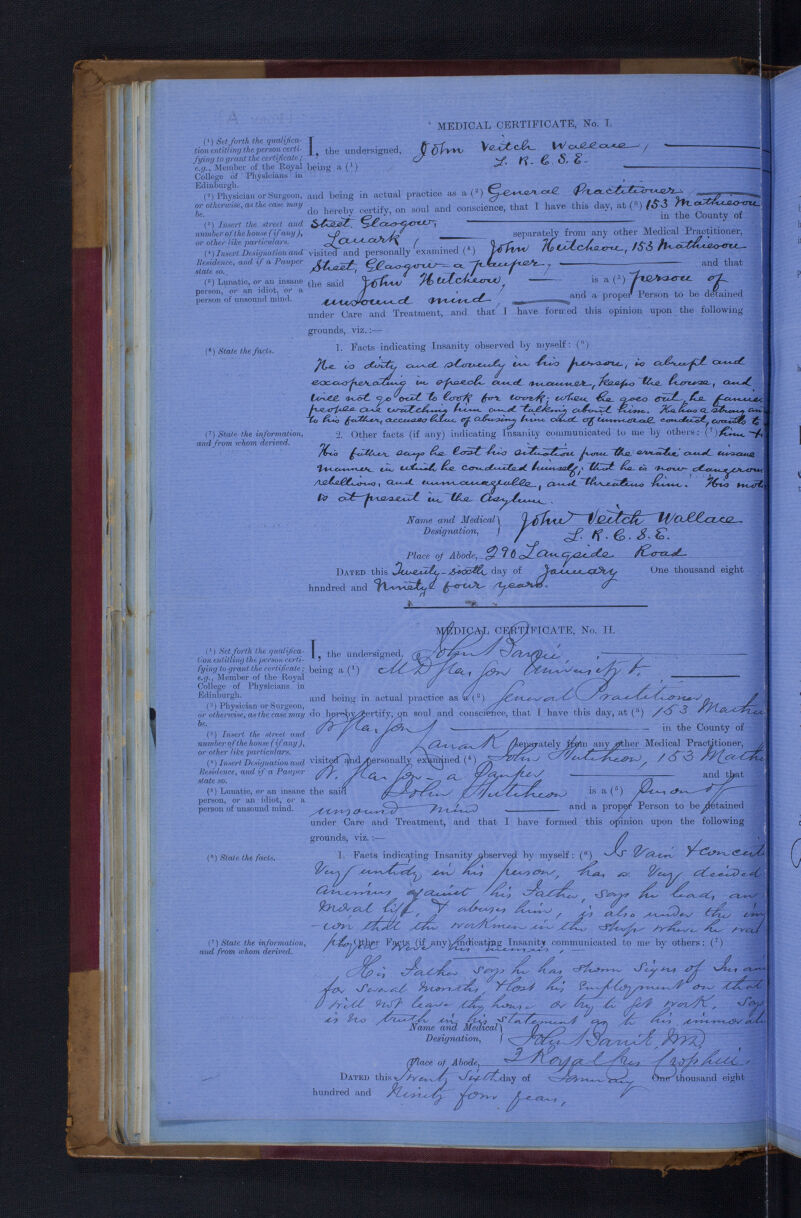 MEDICAL CERTIFICATE, No. I.
(1) Set forth the qualifica-
tion entitling the person certi-
fying to grant the certificate;
e.g., Member of the Royal
College of Physicians in
Edinburgh.
I, the undersigned, John Veitch Wallace,
being a (1) L. R. C. S. E.
(2) Physician or Surgeon,
or otherwise, as the case may
be.
and being in actual practice as a (2) General Practitioner,
do hereby certify, on soul and conscience, that I have this day, at (3) 153 Mathieson
(3) Insert the street and
number of the house (if any),
or other like particulars.
Street Glasgow, in the County of
Lanark, separately from any other Medical Practitioner,
(4) Insert Designation and
Residence, and if a Pauper
state so.
visited and personally examined (4) John Hutcheon, 153 Mathieson
Street, Glasgow - a pauper, and that
(5) Lunatic, or an insane
person, or an idiot, or a
person of unsound mind.
the said John Hutcheon, is a (5) person of
unsound mind, and a proper Person to be detained
under Care and Treatment, and that I have formed this opinion upon the following
grounds, viz.:—
(6) State the facts.
1. Facts indicating Insanity observed by myself: (6)
He is dirty and slovenly in his person, is abrupt and
exasperating in speech and manner, keeps the house, and
will not go out to look for work; when he goes out, he fancies
people are watching him and talking about him. He has a strong
to his father, accuses him of abusing him and of immoral conduct, wants to
(7) State the information,
and from whom derived.
2. Other facts (if any) indicating Insanity communicated to me by others: (7) him
His father says he lost his situation from the erratic and insane
manner in which he conducted himself; that he is now dangerous
rebellious, and unmanageable, and threatens him. His
is at present in the Asylum.
Name and Medical
Designation,
John Veitch Wallace
L. R. C. S. E.
Place of Abode, 290 Langside Road
DATED this Twenty-sixth day of January One thousand eight
hundred and Ninety four years.
MEDICAL CERTIFICATE, No. II.
(1) Set forth the qualifica-
tion entitling the person certi-
fying to grant the certificate;
e.g., Member of the Royal
College of Physicians in
Edinburgh.
I, the undersigned, John Barrie
being a (1) M D Glasgow University
(2) Physician or Surgeon,
or otherwise, as the case may
be.
and being in actual practice as a (2) General Practitioner
do hereby certify, on soul and conscience, that I have this day, at (3) 153
(3) Insert the street and
number of the house (if any),
or other like particulars.
Glasgow in the County of
Lanark separately from any other Medical Practitioner,
(4) Insert Designation and
Residence, and if a Pauper
state so.
visited and personally examined (4) John Hutcheon, 153
Glasgow - a Pauper and that
(5) Lunatic, or an insane
person, or an idiot, or a
person of unsound mind.
the said John Hutcheon is a (5) Person of
unsound mind and a proper Person to be detained
under Care and Treatment, and that I have formed this opinion upon the following
grounds, viz.:—
(6) State the facts.
1. Facts indicating Insanity observed by myself: (6) Is Vain &
Very untidy in his person, has a Very decided
animus against his Father, says he leads an
moral life, & abuses him, is also under the
that the workmen in the Shop where he was
were his enemies.
(7) State the information,
and from whom derived.
2. Other Facts (if any) indicating Insanity communicated to me by others: (7)
His Father says he has shown signs of
for several months, & lost his Employment on that
Will not leave the house or try to get work.
is no truth in his statement as to his
Name and Medical
Designation,
John Barrie MD
Place of Abode, 3 Royal Crosshill
DATED this Twenty Sixth day of January One thousand eight
hundred and Ninety four years,